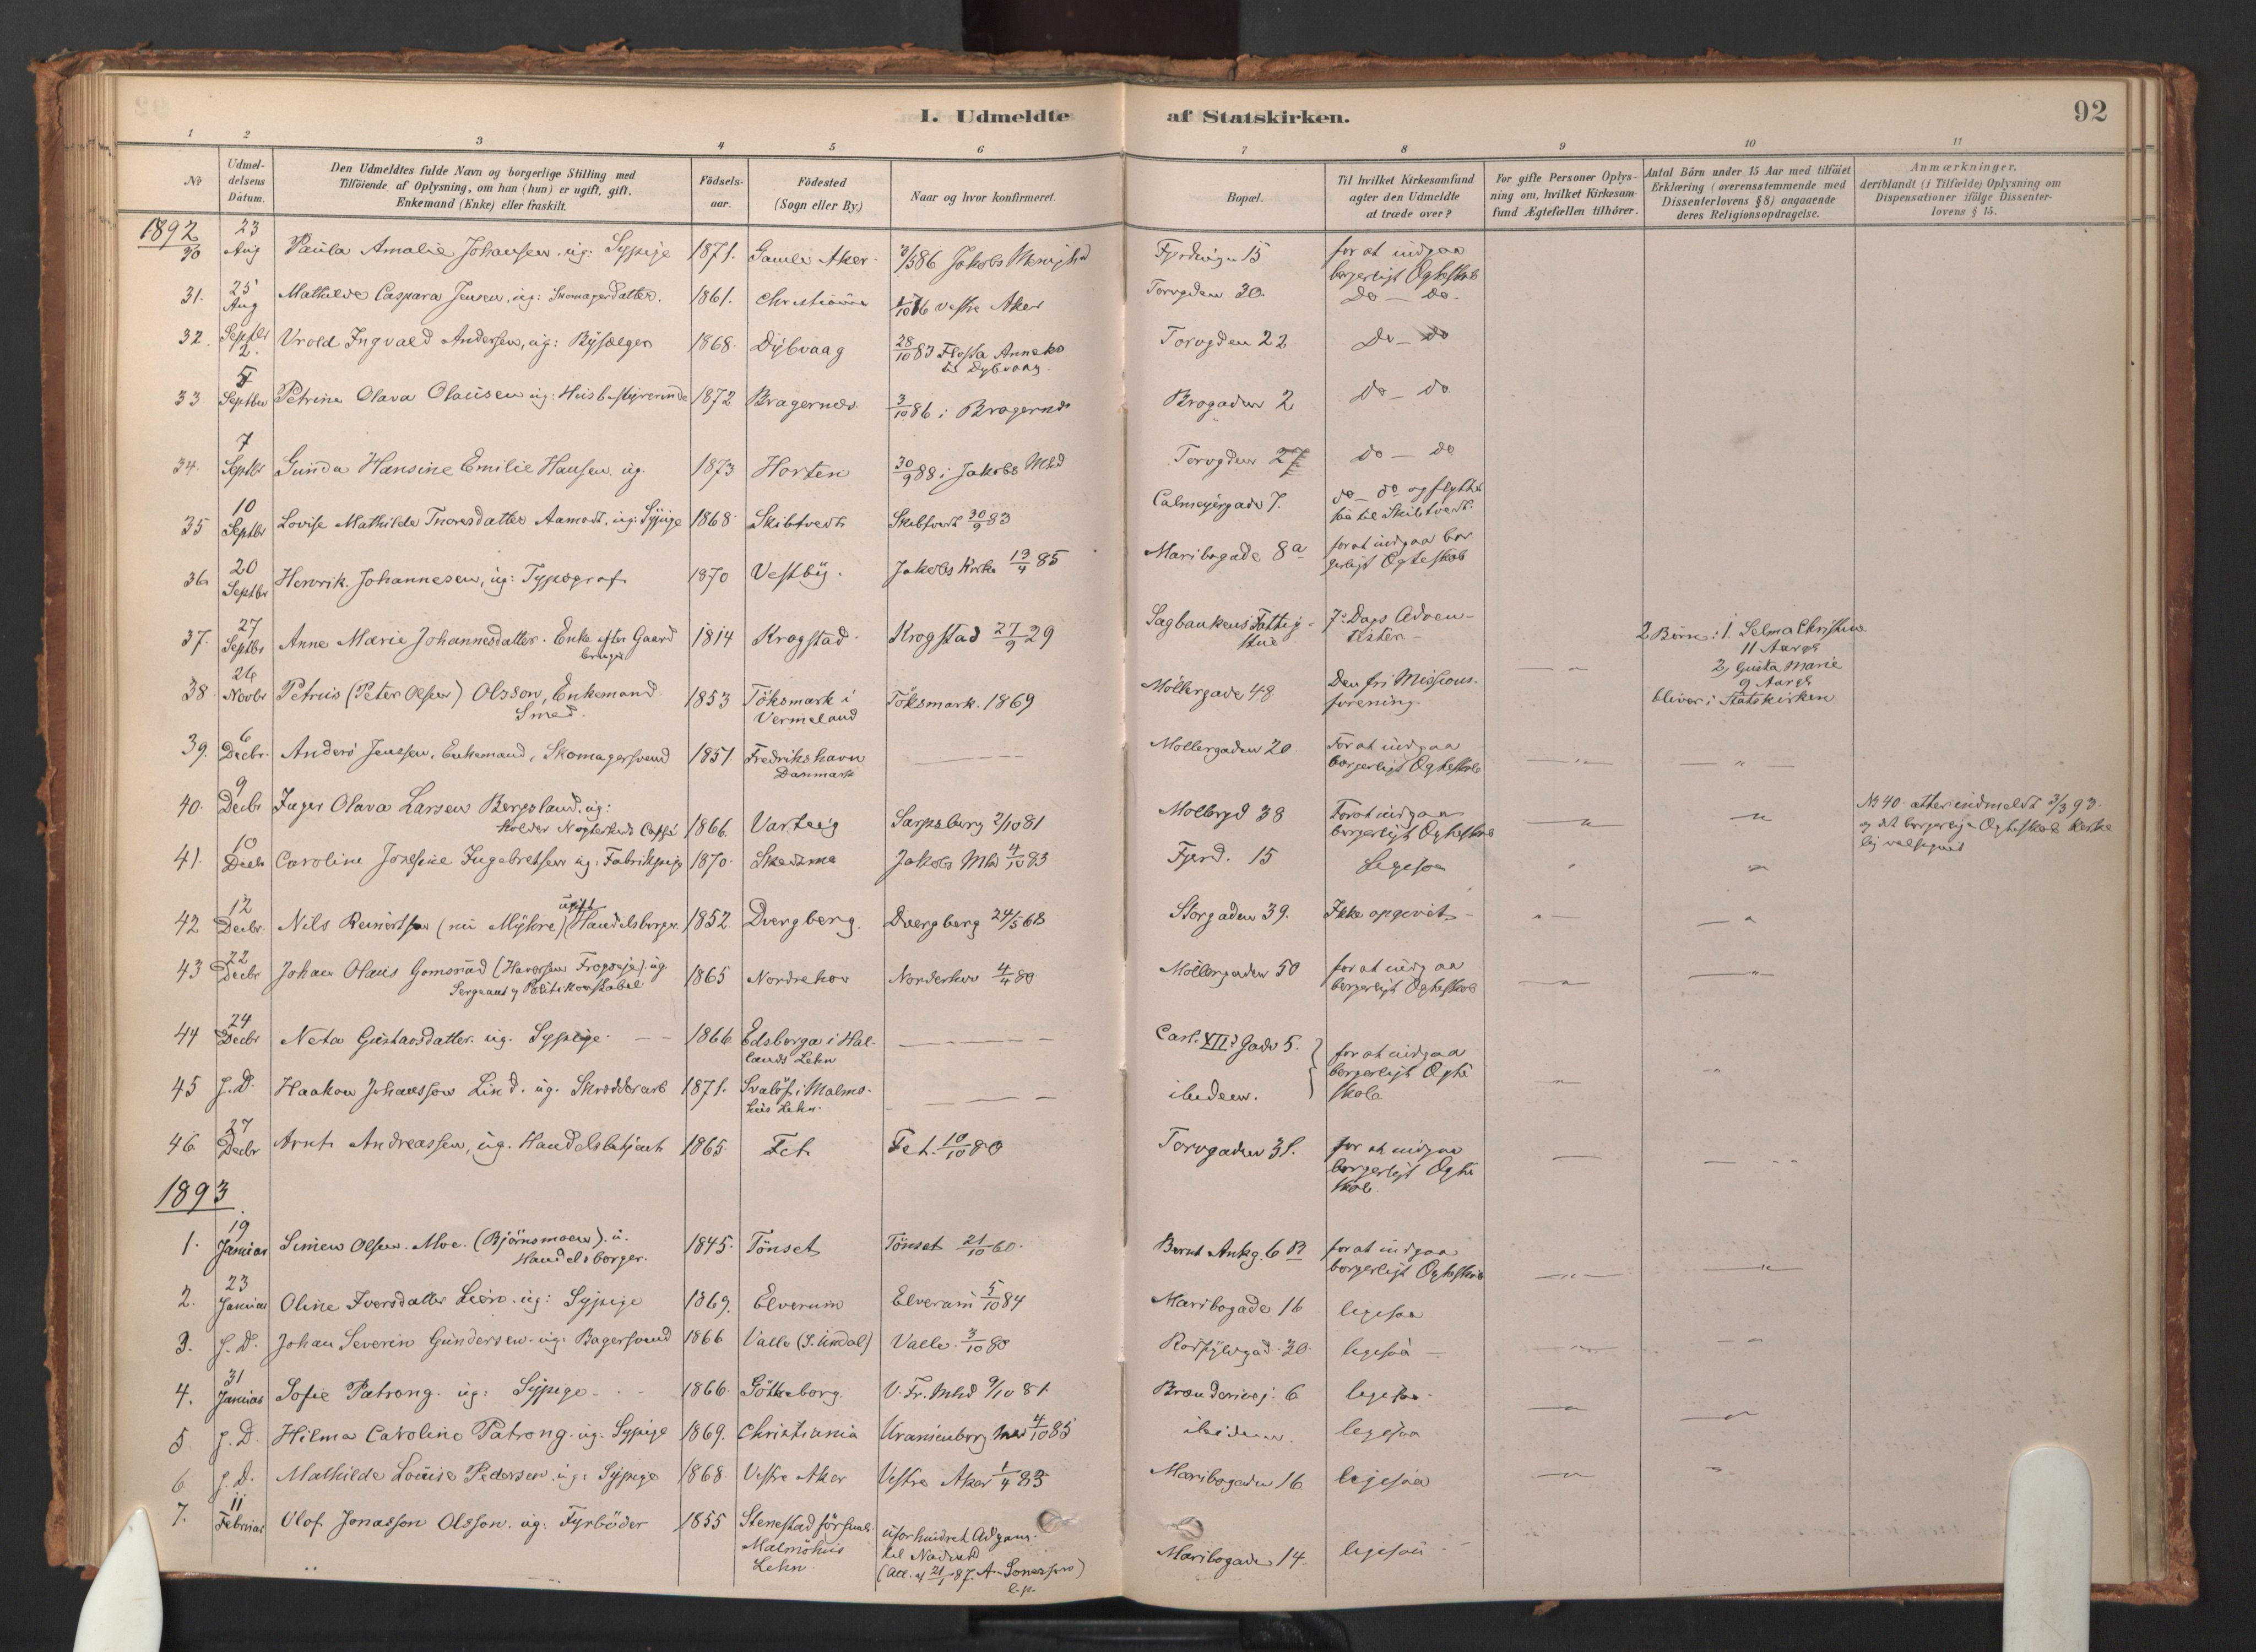 I. Udmeldte af Statskirken. 92
1 2 3 4 5 6 7 8 9 10 11
No
Udmeldelsens Datum.
Den Udmeldtes fulde Navn og borgerlige Stilling med
Tilföiende af Oplysning, om han (hun) er ugift, gift,
Enkemand (Enke) eller fraskilt.
Födselsaar.
Födested
(Sogn eller By.)
Naar og hvor konfirmeret.
Bopæl.
Til hvilket Kirkesamfund
agter den Udmeldte
at træde over?
For gifte Personer Oplysning om, hvilket Kirkesamfund Ægtefællen tilhörer.
Antal Börn under 15 Aar med tilföiet
Erklæring (overensstemmende med
Dissenterlovens § 8) angaaende
deres Religionsopdragelse.
Anmærkninger.
deriblandt (i Tilfælde) Oplysning om
Dispensationer ifölge Dissenterlovens § 15.
1892
30 23 Aug Paula Amalie Johansen ug: Sypige 1871. Gamle Aker 86 Jakobs 15 for at indgaa borgerligt Ægteskab
31. 25 Aug Mathilde Caspara Jensen, ug: 1861. Christiania Vestre Aker Torvgden 30. Do — do.
32. Septbr 2. Ingvald Andersen, ug: 1868. Dybvaag 28/10 83 Dybvaag Torvgden 22 Do — Do
33 5 Septbr Petrine Olava Olausen ug: Husbestyrerinde 1872 Bragernæs 3/10 86 i Bragernæs Brogaden 2 do — do
34. 7 Septbr Gunda Hansine Emilie Hansen ug. 1873 Horten 30/9 88 i Jakobs Mhd Torvgden 27 do — do
35 10 Septbr Lovise Mathilde Thoresdatter Aamodt, ug: Sypige 1868 Skibtvedt Skibtvedt 30/9 83 Calmeyergade 7. do — do og flytter saa til Skibtvedt.
36 20 Septbr Henrik Johannesen, ug: Typograf 1870 Vestby. Jakobs Kirke 13/4 85 Maribogade 8a for at indgaa borgerligt Ægteskab
37. 27 Septbr Anne Marie Johannesdatter. Enke efter Gaardbruger 1814 Krogstad Krogstad 27/9 29 Sagbankens Fattigstue 7de Dags Adventister
38 26 Novbr Petrus (Peter Olsen) Olsson, Enkemand Smed. 1853 Töksmark i Vermeland Töksmark. 1869 Möllergade 48 Den fri Missionsforening.
2 Börn: 1. Selma Christine
11 Aar
2, Gusta Marie
9 Aar
bliver i Statskirken
39. 6 Decbr. Anders Jenssen, Enkemand, Skomagersvend 1851. Fredrikshavn Danmark Möllergaden 20. For at indgaa borgerligt Ægteskab
40. 9 Decbr Inger Olava Larsen Bergsland. ug: 1866 Varteig Sarpsborg 2/10 81 Mollergd 38 For at indgaa borgerligt Ægteskab
No 40 atter indmeldt 3/3 93.
og det borgerlige Ægteskab
41. 10 Decbr Caroline Josefine Ingebretsen ug: Fabrikpige 1870. Skedsmo Jakobs Mhd 4/10 83 Fjerd. 15 Ligesaa
42 12 Decbr. Nils Reinertsen (nu Myhre) ugift Handelsborger. 1852. Dvergberg. Dvergberg 24/5 68 Storgaden 39. Ikke opgivet
43 22 Decbr Johan Olaus Gomsrud ug. Sergeant og Politikonstabel 1865 Nordrehov Norderhov 4/4 80 Möllergaden 50 for at indgaa borgerligt Ægteskab
44 24 Decbr Neta Gustavsdatter. ug. Sypige. 1866 Edsborga i Hallands Lehn Carl XIIs Gade 5. for at indgaa borgerligt Ægteskab
45 S. D. Haakon Johansson Lind. ug. Skrædderarb 1871. Svalöf i Malmöhus Lehn. ibidem.
46 27 Decbr Arnt Andreassen, ug. Handelsbetjent 1865 Fet Fet. 10/10 80 Torvgaden 31. for at indgaa borgerligt Ægteskab.
1893
1. 19 Januar Simen Olsen Moe. (Björnsmoen). u. Handelsborger. 1845. Tönset Tönset 21/10 60. Bernt Ankg. 6 B for at indgaa borgerligt Ægteskab
2. 23 Januar Oline Iversdatter Lien. ug: Sypige 1869. Elverum Elverum 5/10 84 Maribogade 16 ligesaa
3. S. D. Johan Severin Gundersen. ug: Bagersvend 1866 Valle (S. Undal) Valle. 3/10 80 20. ligesaa
4. 31 Januar Sofie Patrong. ug: Sypige 1866. Göttaborg. V. Fr. Mhd 9/10 81. 6 ligesaa.
5 S. D. Hilma Caroline Patrong. ug. Sypige 1869. Christiania Uranienborg Mhd 4/10 85 ibidem. ligesaa
6. S. D. Mathilde Louise Pedersen. ug: Sypige 1868. Vestre Aker Vestre Aker 1/4 83 Maribogaden 16 ligesaa
7. 11 Februar Olof Jonasson Olsson. ug: Fyrböder 1855 Stenestad församl. Malmöhus Lehn uforhindret Adgang til Nadverd (Att. af 21/1 87. A. Maribogade 14. ligesaa